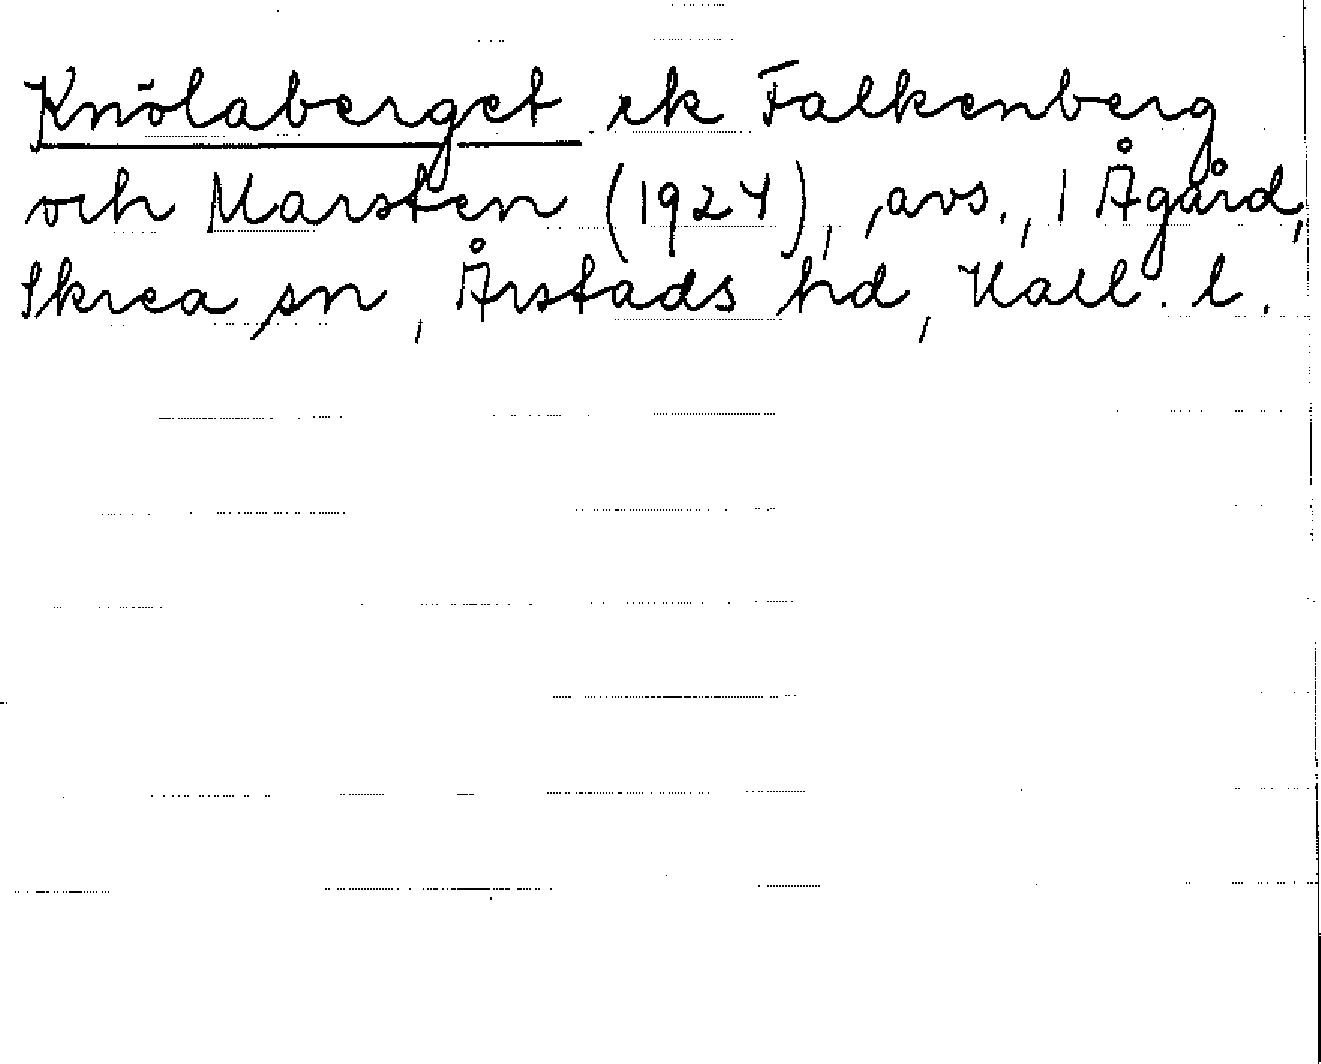 Knölaberget ek Falkenberg
och Marsten (1924), ,avs., 1 Ågård,
Skrea sn, Årstads hd, Hall. l.